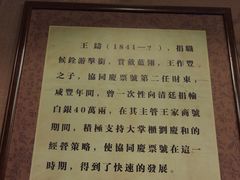 王鑄（1841—？），捐職
候銓游擊銜，賞戴藍翎。王作豐
之子，協同慶票號第二任財東，
咸豐年間，曾一次性向清廷捐輸
白銀40萬兩，在其主管王家商號
期間，積極支持大掌櫃劉慶和的
經營策略，使協同慶票號在這一
時期，得到了快速的發展。